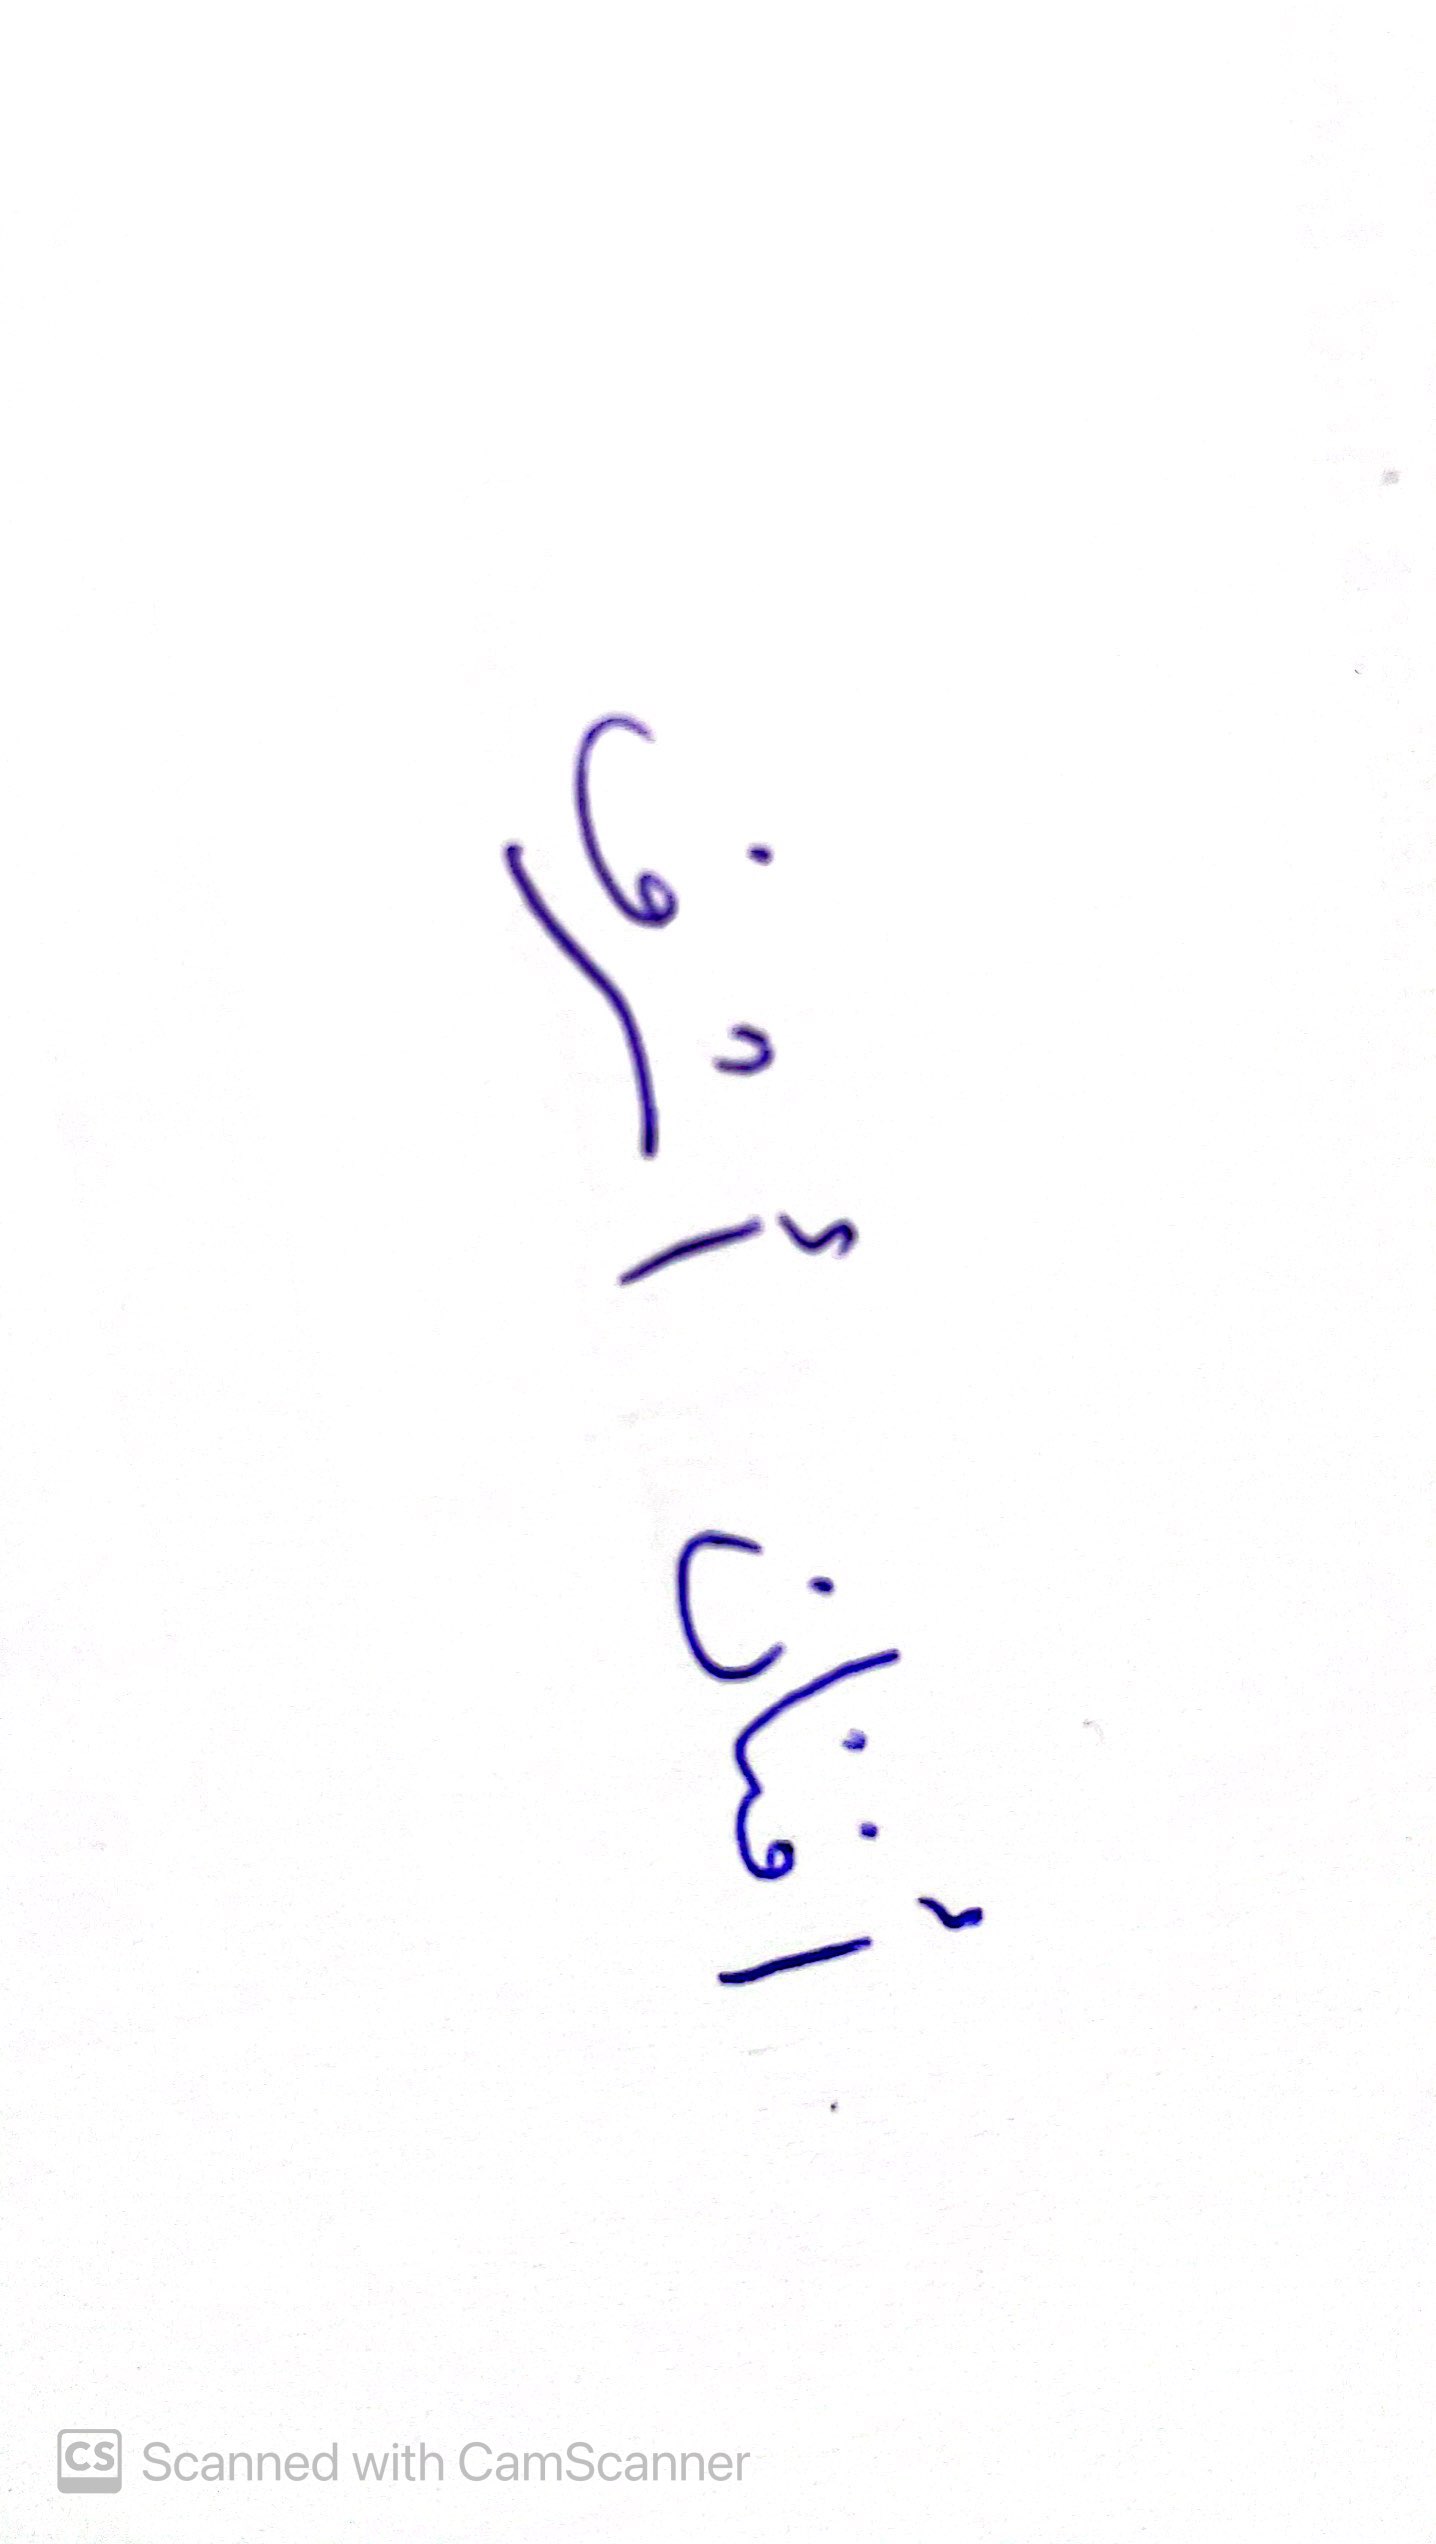 أفنان أشرف
Scanned with CamScanner